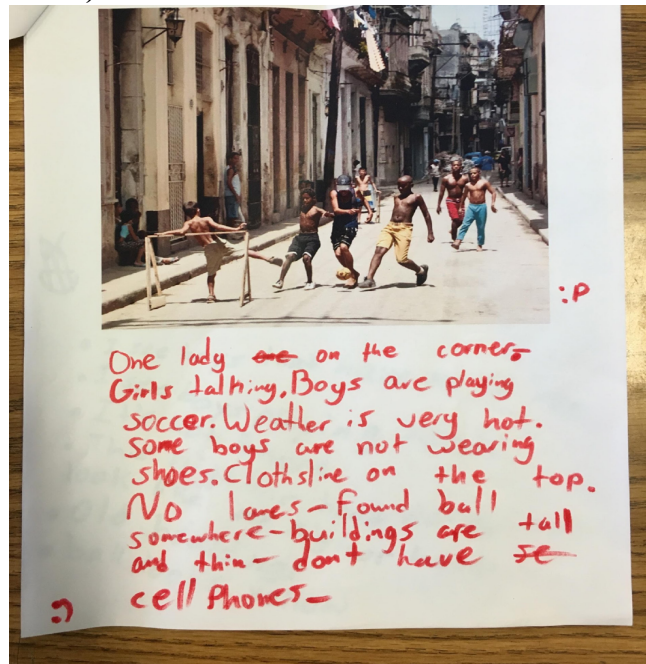 :P
One lady on the corner-
Girls talking. Boys are playing
soccer. Weather is very hot.
Some boys are not wearing
shoes. Clothsline on the top.
No lanes - found ball
somewhere - buildings are tall
and thin - dont have
cell Phones -
:)